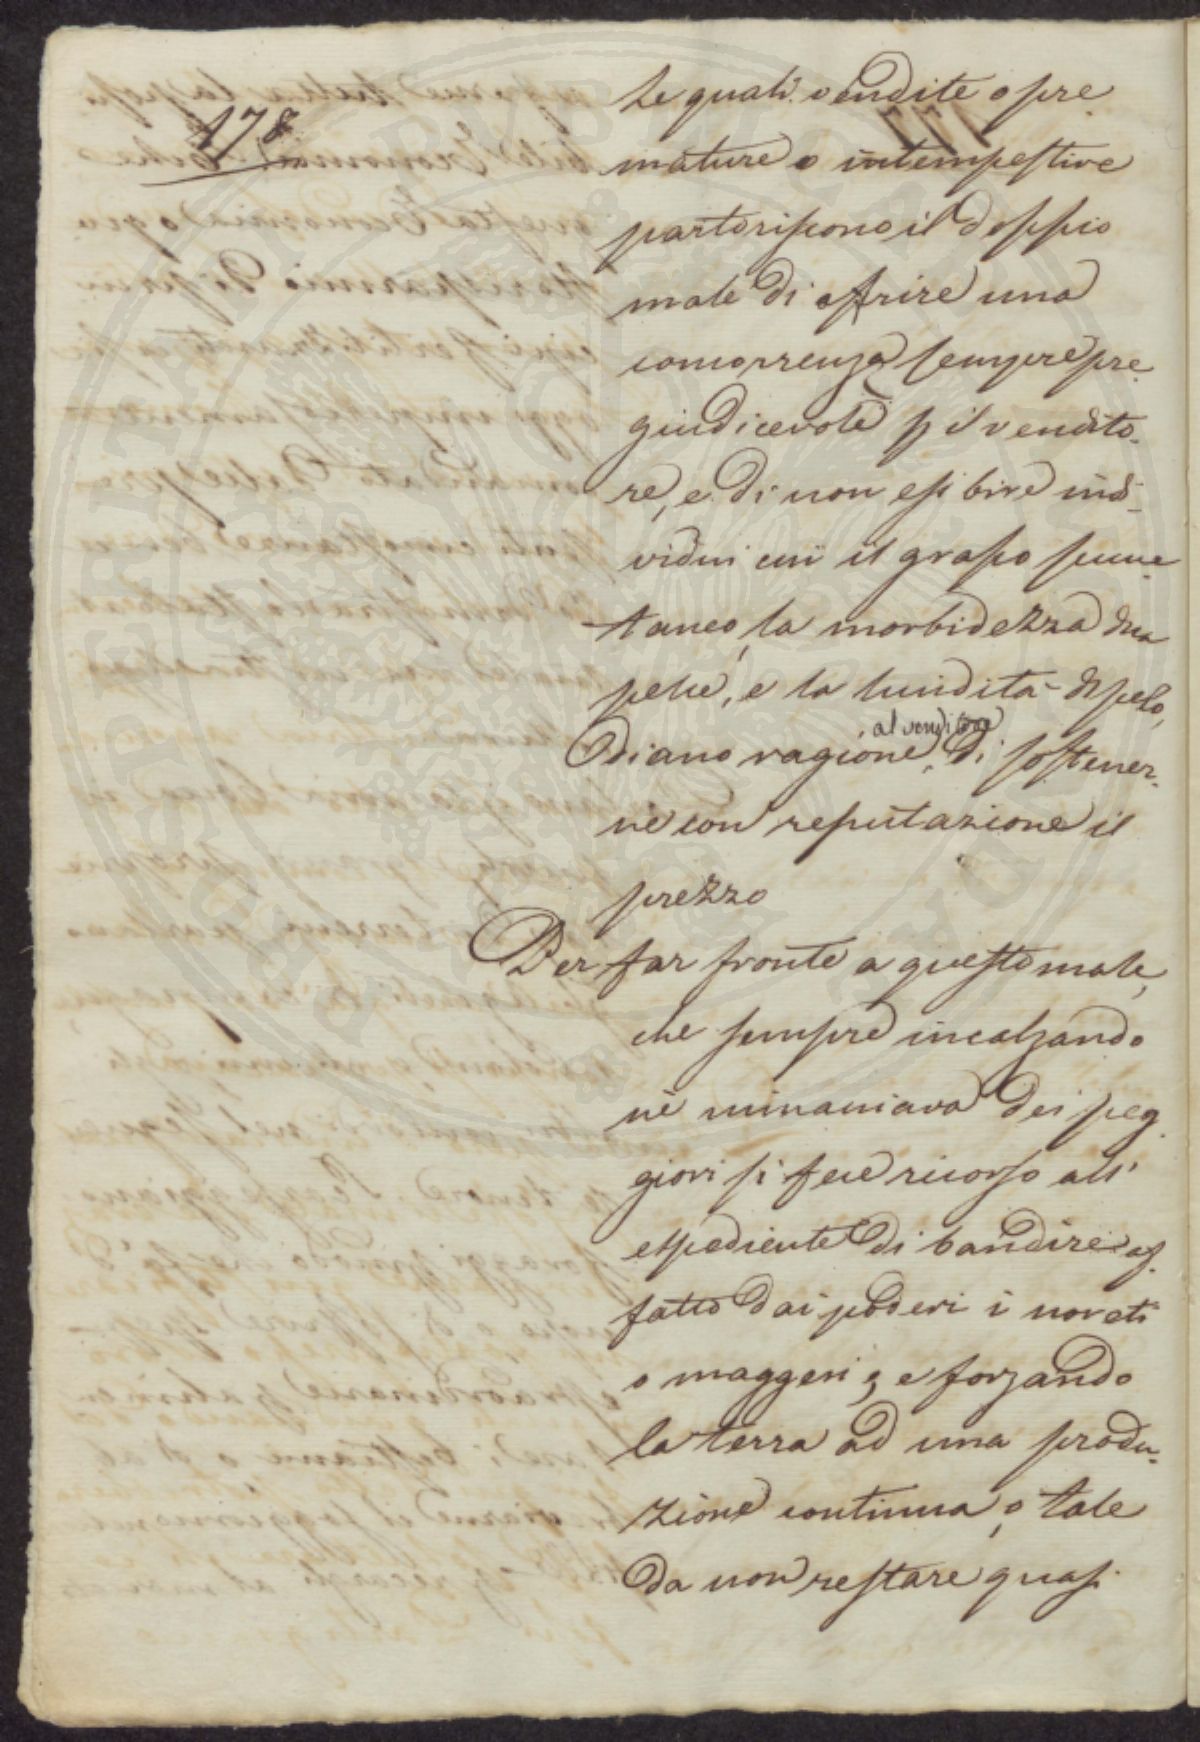 178
Le quali vendite o pre
mature o intempestive
partoriscono il doppio
male di offrire una
concorrenza sempre pre-
giudicevole p il vendito-
re, e di non esibire indi-
vidui cui il grasso sume-
taneo, la morbidezza dua
pelle, e la lucidità di pelo,
al venditore
diano ragione, di sostener-
ne con reputazione il
prezzo
Per far fronte a questo male,
che sempre incalzando
ne minacciava dei peg-
giori si fece ricorso all'
espediente di bandire af-
fatto dai poderi i novati
o maggesi; e forzando
la terra ad una produ-
zione continua, o tale
da non restare quasi